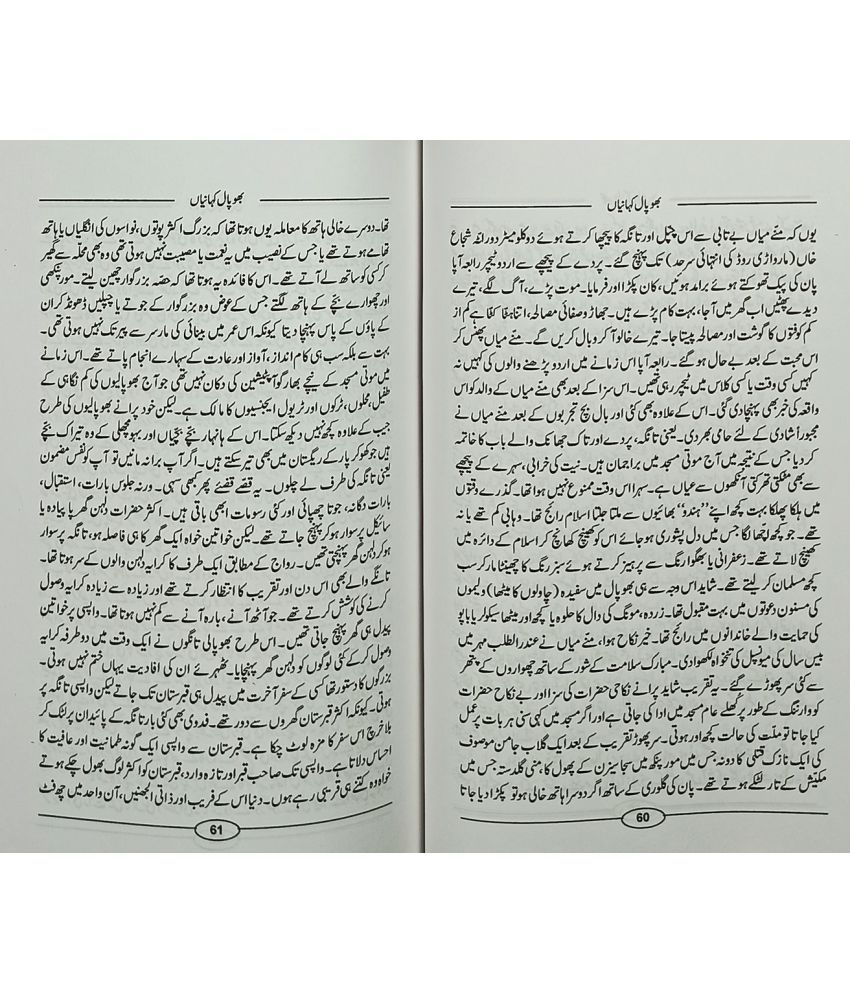 بھوپال کہانیاں
یوں کہ منّے میاں بے تابی سے اس چپل اور تانگہ کا پیچھا کرتے ہوئے دو کلو میٹر دور اللہ شجاع
خاں (مارواڑی روڈ کی انتہائی سرحد) تک پہنچ گئے۔ پردے کے پیچھے سے اردو ٹیچر رابعہ آپا
پان کی پیک تھوکتے ہوئے برآمد ہوئیں، کان پکڑا اور فرمایا۔ موت پڑے، آگ لگے، تیرے
دیدے پھٹیں اب گھر میں آجا، بہت کام پڑے ہیں۔ جھاڑو صفائی مصالحہ، اتنا ہلکا پھلکا ہے کم از
کم کوفتوں کا گوشت اور مصالحہ پیستا جا۔ تیرے خالو آ کر وبال کریں گے۔ منّے میاں پھنس کر
اس محبت کے بعد بے حال ہو گئے۔ رابعہ آپا اس زمانے میں اردو پڑھنے والوں کی کہیں نہ
کہیں کسی وقت یا کسی کلاس میں ٹیچر رہی تھیں۔ اس سزا کے بعد بھی منّے میاں کے والد کو اس
واقعہ کی خبر بھی پہنچا دی گئی۔ اس کے علاوہ بھی کئی اور بال بیچ تجربوں کے بعد منّے میاں نے
مجبوراً شادی کے لئے حامی بھر دی۔ یعنی تانگہ، پردے اور تاک جھانک والے باب کا خاتمہ
کر دیا جس کے نتیجہ میں آج موتی مسجد میں براجمان ہیں۔ نیت کی خرابی، سہرے کے پیچھے
سے بھی مٹکتی تھرکتی آنکھوں سے عیاں ہے۔ سہرا اس وقت ممنوع نہیں ہوا تھا۔ گذرے وقتوں
میں ہلکا پھلکا بہت کچھ اپنے ’’ہندو‘‘ بھائیوں سے ملتا جلتا اسلام رائج تھا۔ وہابی کم تھے یا نہ
تھے۔ جو کچھ اچھا لگا جس میں دل پشوری ہو جائے اس کو کھینچ کھانچ کر اسلام کے دائرہ میں
کھینچ لاتے تھے۔ زعفرانی یا بھگوا رنگ سے پرہیز کرتے ہوئے سبز رنگ کا چھینٹا مار کر سب
کچھ مسلمان کر لیتے تھے۔ شاید اس وجہ سے ہی بھوپال میں سفیدہ (چاولوں کا میٹھا) ولیموں
کی مسنون دعوتوں میں بہت مقبول تھا۔ زردہ، مونگ کی دال کا حلوہ یا کچھ اور میٹھا سیکولر یا باپو
کی حمایت والے خاندانوں میں رائج تھا۔ خیر نکاح ہوا، منّے میاں نے عند الطلب مہر میں
بیس سال کی میونسپل کی تنخواہ لکھوا دی۔ مبارک سلامت کے شور کے ساتھ چھواروں کے پتھر
سے کئی سر پھوڑے گئے۔ یہ تقریب شاید پرانے نکاحی حضرات کی سزا اور بے نکاح حضرات
کو وارننگ کے طور پر کھلے عام مسجد میں ادا کی جاتی ہے اور اگر مسجد میں کہی سنی ہر بات پر عمل
کیا جاتا تو ملّت کی حالت کچھ اور ہوتی۔ سر پھوڑ تقریب کے بعد ایک گلاب جامن موصوف
کی ایک نازک قتلی کا دونہ جس میں مور پنکھ میں سجا سیزن کے پھول کا منی گلدستہ جس میں
مکیش کے تار لٹکے ہوتے تھے۔ پان کی گلوری کے ساتھ اگر دوسرا ہاتھ خالی ہو تو پکڑا دیا جاتا
60
بھوپال کہانیاں
تھا۔ دوسرے خالی ہاتھ کا معاملہ یوں ہوتا تھا کہ بزرگ اکثر پوتوں، نواسوں کی انگلیاں یا ہاتھ
تھامے ہوتے تھے یا جس کے نصیب میں یہ نعمت یا مصیبت نہیں ہوتی تھی وہ بھی محلّہ سے گھیر
کر کسی کو ساتھ لے آتے تھے۔ اس کا فائدہ یہ ہوتا تھا کہ حصّہ بزرگوار چھین لیتے۔ مور پنکھی
اور چھوارے بچے کے ہاتھ لگتے جس کے عوض وہ بزرگوار کے جوتے یا چپلیں ڈھونڈ کر ان
کے پاؤں کے پاس پہنچا دیتا کیونکہ اس عمر میں بینائی کی مار سر سے پیر تک نہیں ہوتی تھی۔
بہت سے بلکہ سب ہی کام انداز، آواز اور عادت کے سہارے انجام پاتے تھے۔ اس زمانے
میں موتی مسجد کے نیچے بھارگو آپٹیشین کی دکان نہیں تھی جو آج بھوپالیوں کی کم نگاہی کے
طفیل، محلوں، ٹرکوں اور ٹریول ایجنسیوں کا مالک ہے۔ لیکن خود پرانے بھوپالیوں کی طرح
جیب کے علاوہ کچھ نہیں دیکھ سکتا۔ اس کے ہانہار بچے بچیاں اور بہو مچھلی کے وہ تیراک بچے
ہیں جو کھوکر پار کے ریگستان میں بھی تیر سکتے ہیں۔ اگر آپ برا نہ مانیں تو آپ کو نفس مضمون
یعنی تانگہ کی طرف لے چلوں۔ یہ قصّے قضئے پھر بھی سہی۔ ورنہ جلوس بارات، استقبال،
بارات دگانہ، جوتا چھپائی اور کئی رسومات ابھی باقی ہیں۔ اکثر حضرات دلہن گھر پا پیادہ یا
سائیکل پر سوار ہو کر پہنچ جاتے تھے۔ لیکن خواتین خواہ ایک گھر کا ہی فاصلہ ہو، تانگہ پر سوار
ہو کر دلہن گھر پہنچتی تھیں۔ رواج کے مطابق ایک طرف کا کرایہ دلہن والوں کے سر ہوتا تھا۔
تانگے والے بھی اس دن اور تقریب کا انتظار کرتے تھے اور زیادہ سے زیادہ کرایہ وصول
کرنے کی کوشش کرتے تھے۔ جو آٹھ آنے، بارہ آنے سے کم نہیں ہوتا تھا۔ واپسی پر خواتین
پیدل ہی گھر پہنچ جاتی تھیں۔ اس طرح بھوپالی تانگوں نے ایک وقت میں دو طرفہ کرایہ
وصول کر کے کئی لوگوں کو دلہن گھر پہنچایا۔ ٹھہرئے ان کی افادیت یہاں ختم نہیں ہوتی۔
بزرگوں کا دستور تھا کسی کے سفر آخرت میں پیدل ہی قبرستان تک جاتے لیکن واپسی تانگہ پر
ہوتی۔ کیونکہ اکثر قبرستان گھروں سے دور تھے۔ فدوی بھی کئی بار تانگہ کے پائیدان پر لٹک کر
بلا خرچ اس سفر کا مزہ لوٹ چکا ہے۔ قبرستان سے واپسی ایک گونہ طمانیت اور عافیت کا
احساس دلاتا ہے۔ واپسی تک صاحب قبر اور تازہ وارد، قبرستان کو اکثر لوگ بھول چکے ہوتے
خواہ وہ کتنے ہی قریبی رہے ہوں۔ دنیا اس کے فریب اور ذاتی الجھنیں، آن واحد میں چھ فٹ
61